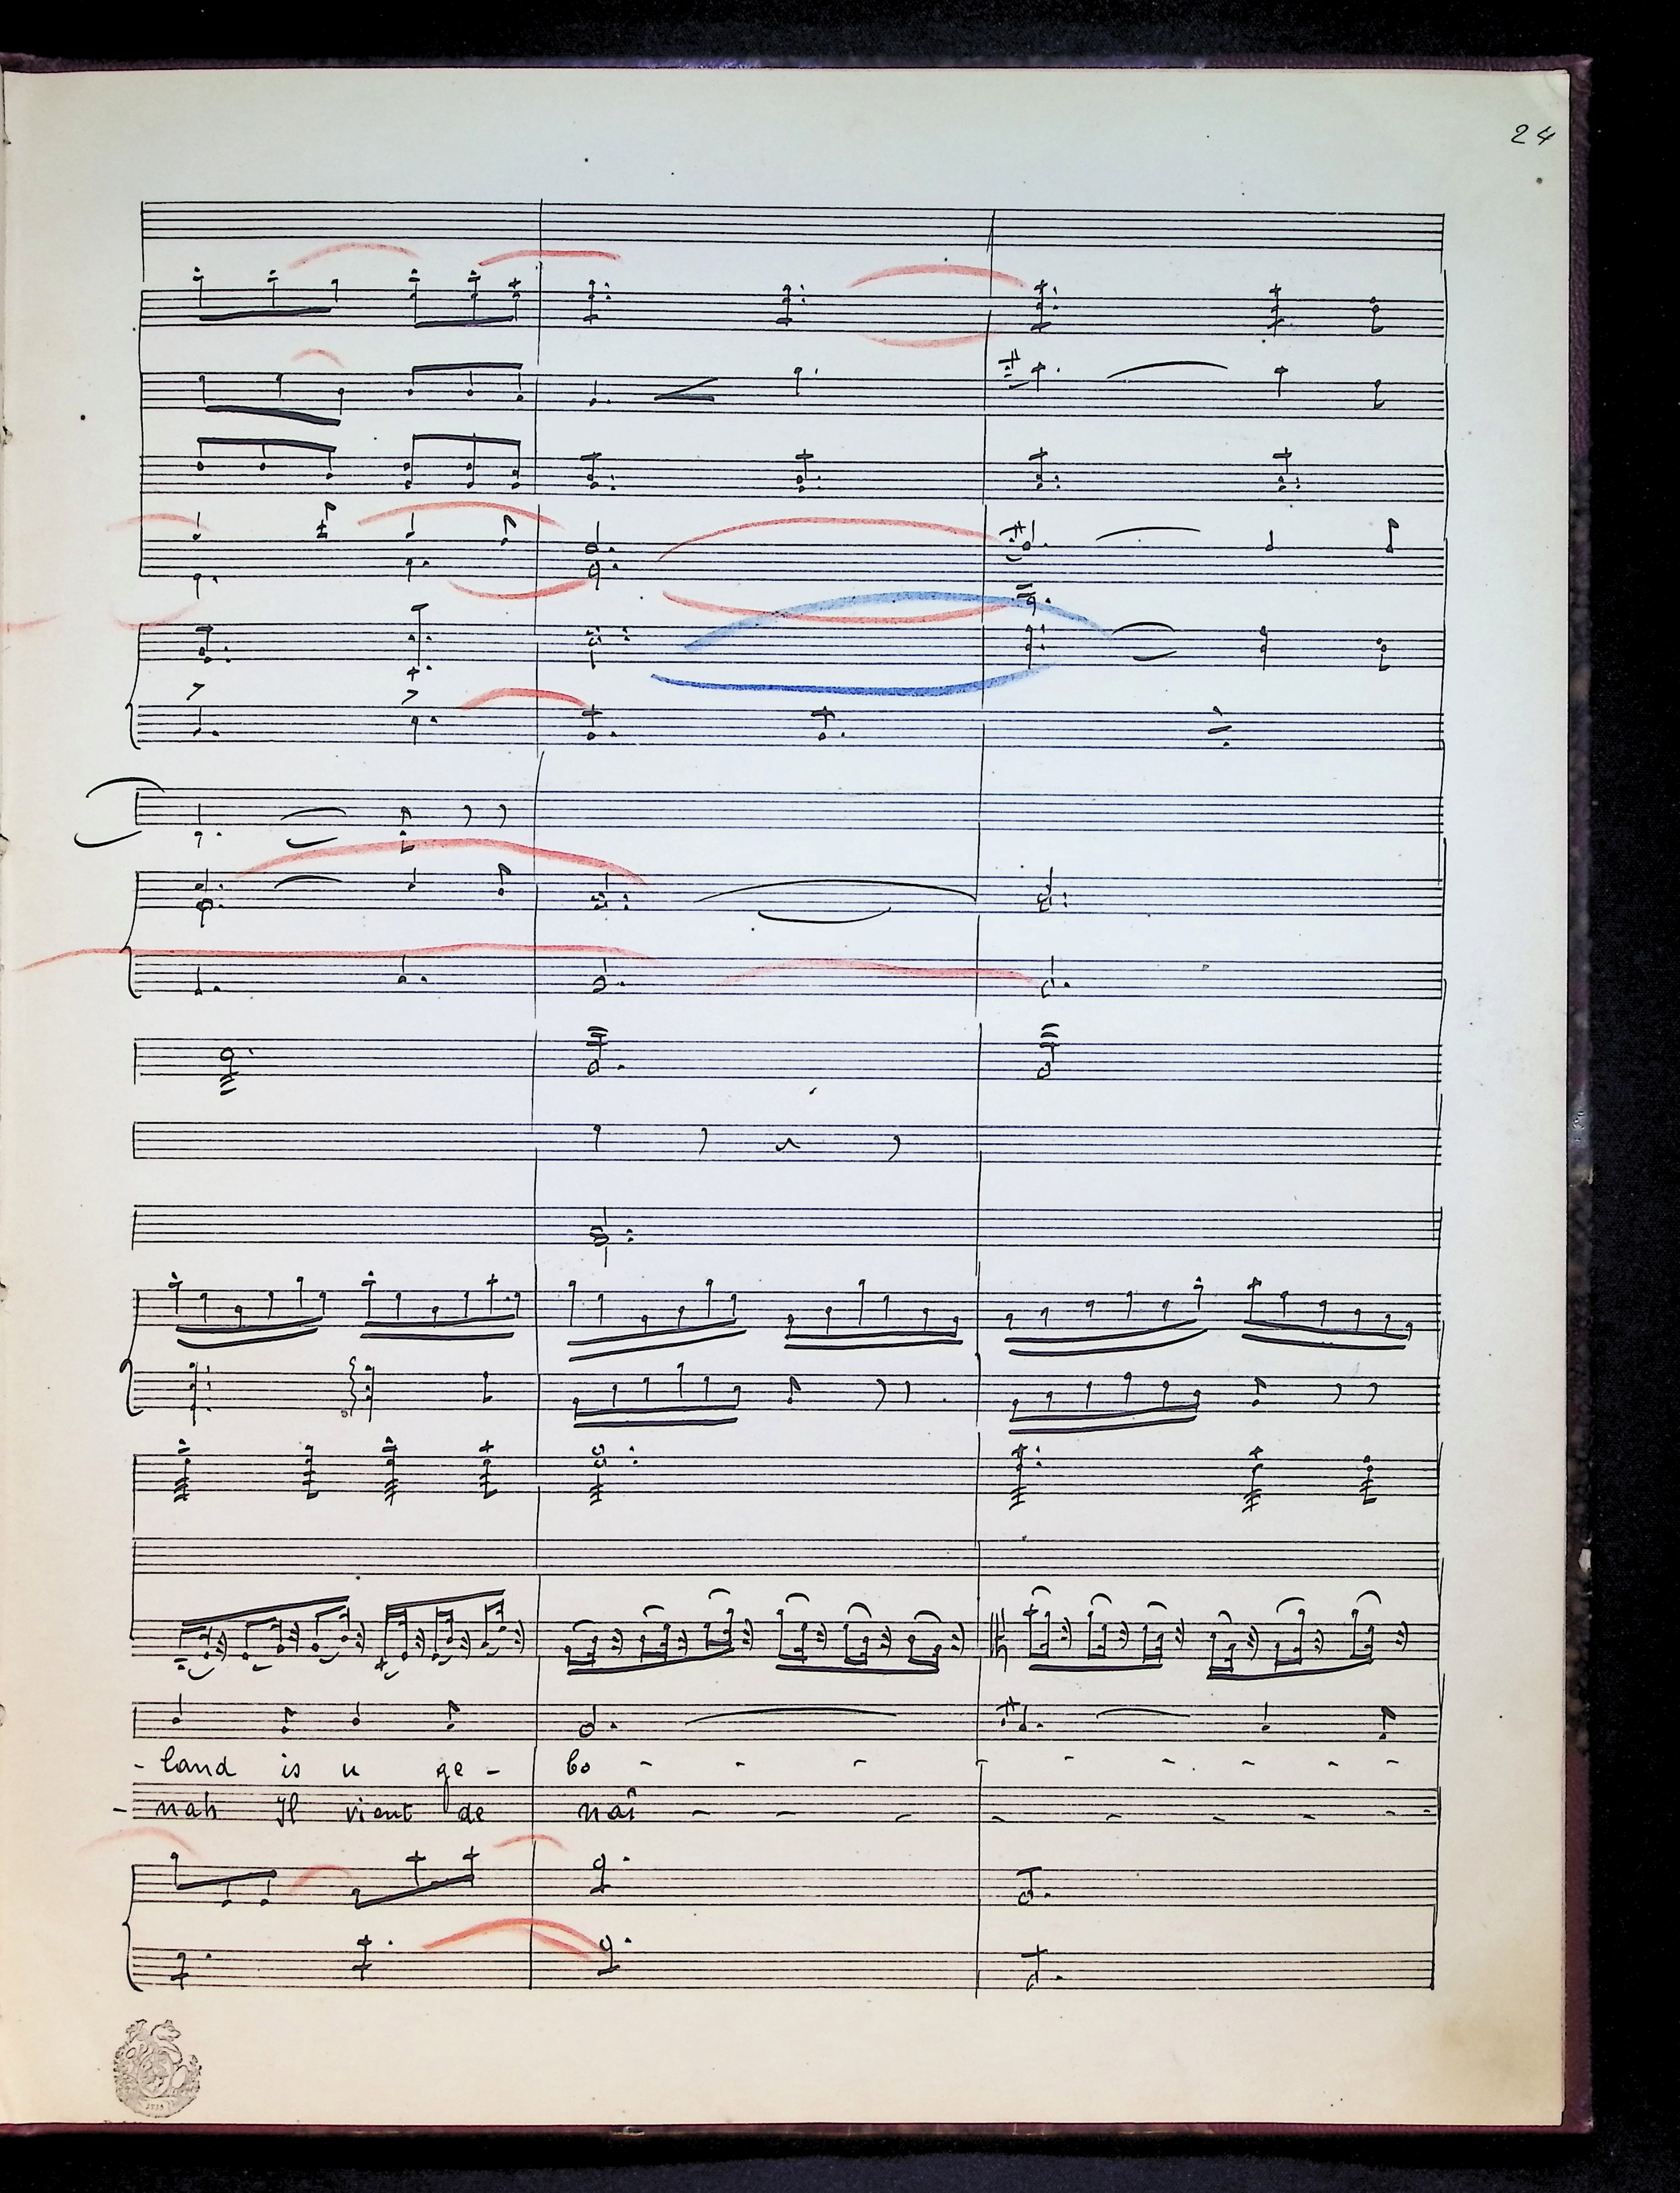 24
- land is u ge - bo - - - - - - - - -
- nah Il vient de naî - - - - - - - - -